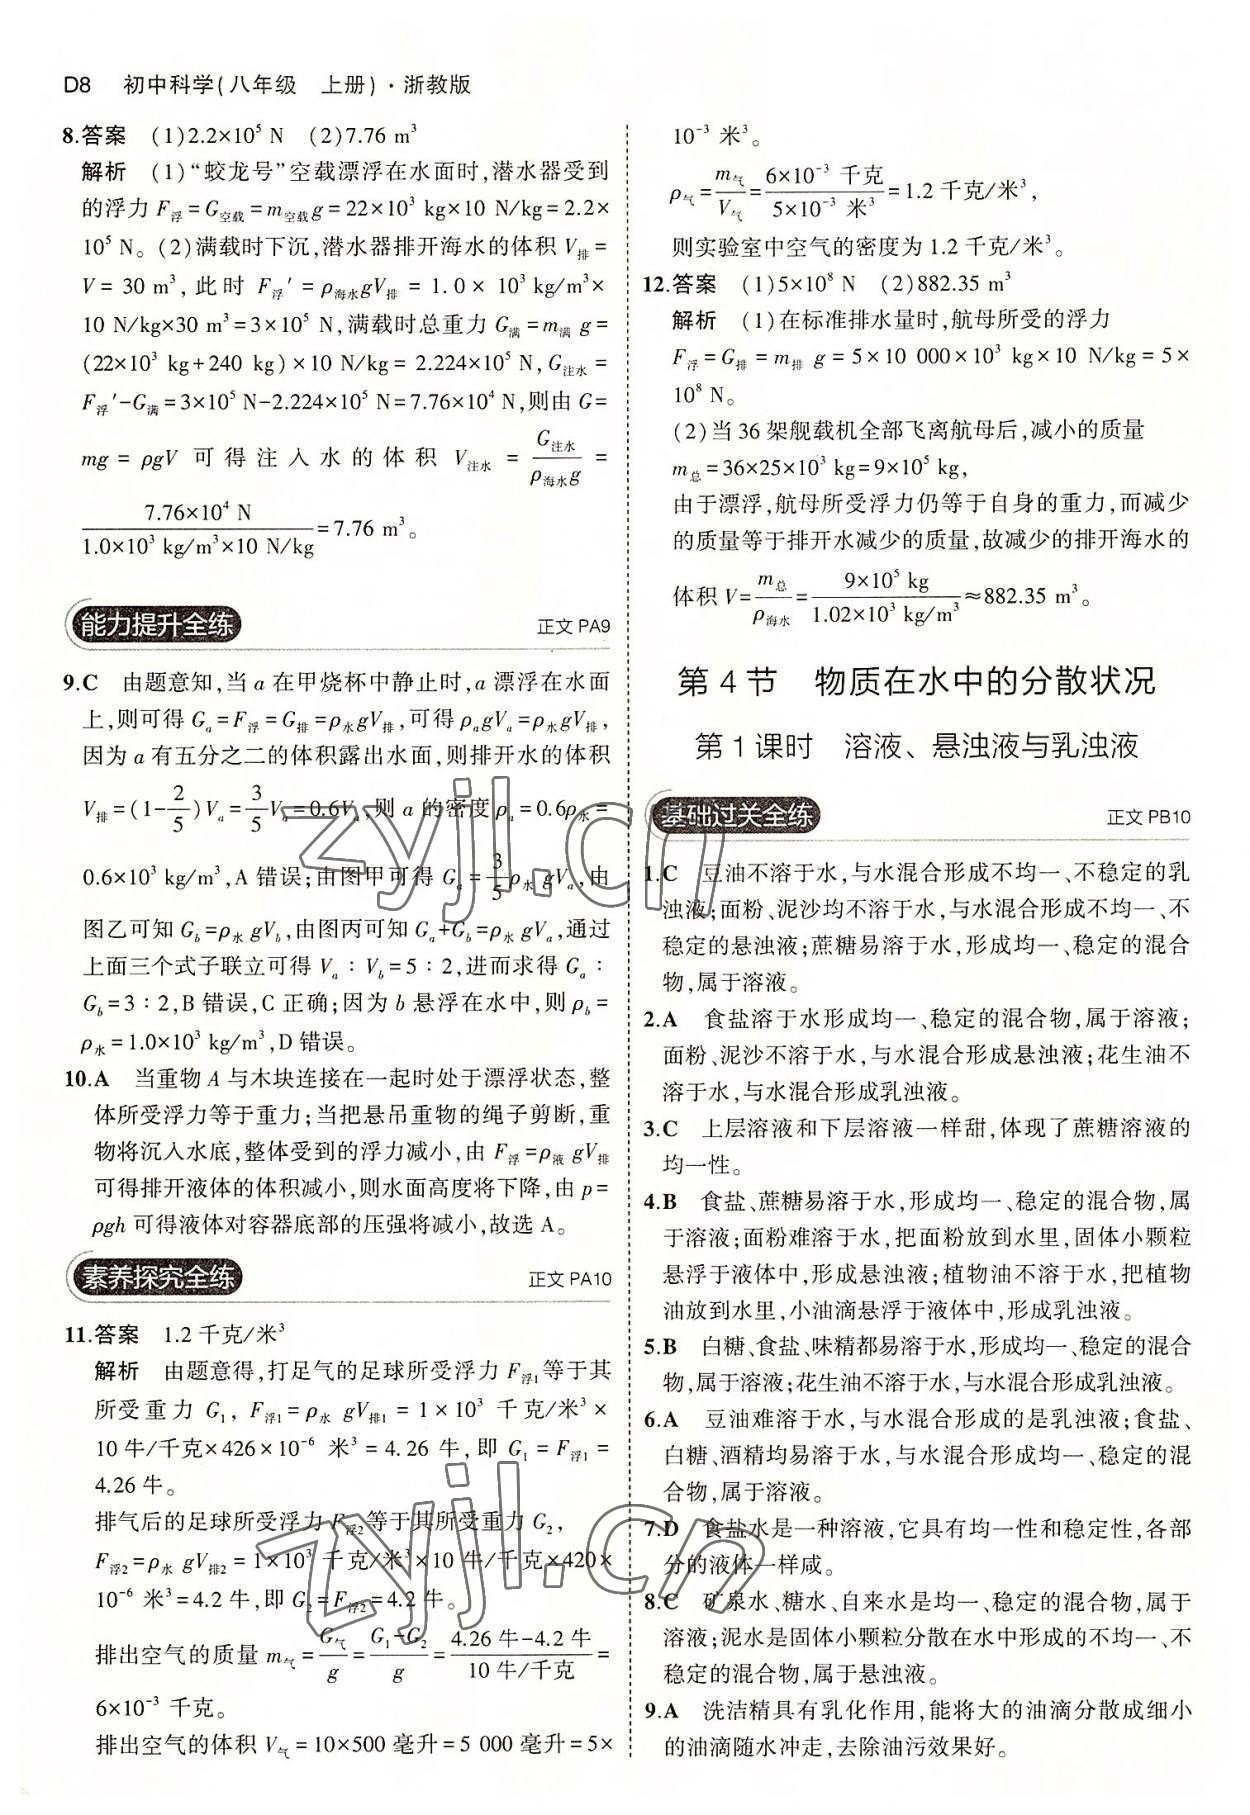 D8 初中科学(八年级 上册)·浙教版
8.答案 (1)2.2×10⁵ N (2)7.76 m³
解析 (1)“蛟龙号”空载漂浮在水面时,潜水器受到
的浮力 F浮=G空载=m空载g=22×10³ kg×10 N/kg=2.2×
10⁵ N。(2)满载时下沉,潜水器排开海水的体积 V排=
V=30 m³,此时 F浮′=ρ海水gV排=1.0×10³ kg/m³×
10 N/kg×30 m³=3×10⁵ N,满载时总重力 G满=m满 g=
(22×10³ kg+240 kg)×10 N/kg=2.224×10⁵ N,G注水=
F浮′-G满=3×10⁵ N-2.224×10⁵ N=7.76×10⁴ N,则由 G=
mg=ρgV 可得注入水的体积 V注水=G注水/ρ海水g=
7.76×10⁴ N/1.0×10³ kg/m³×10 N/kg=7.76 m³。
能力提升全练 正文 PA9
9.C 由题意知,当 a 在甲烧杯中静止时,a 漂浮在水面
上,则可得 Ga=F浮=G排=ρ水gV排,可得 ρagVa=ρ水gV排,
因为 a 有五分之二的体积露出水面,则排开水的体积
V排=(1-2/5)Va=3/5Va=0.6Va,则 a 的密度 ρa=0.6ρ水=
0.6×10³ kg/m³,A 错误;由图甲可得 Ga=3/5ρ水 gVa,由
图乙可知 Gb=ρ水 gVb,由图丙可知 Ga+Gb=ρ水 gVa,通过
上面三个式子联立可得 Va∶Vb=5∶2,进而求得 Ga∶
Gb=3∶2,B 错误,C 正确;因为 b 悬浮在水中,则 ρb=
ρ水=1.0×10³ kg/m³,D 错误。
10.A 当重物 A 与木块连接在一起时处于漂浮状态,整
体所受浮力等于重力;当把悬吊重物的绳子剪断,重
物将沉入水底,整体受到的浮力减小,由 F浮=ρ液 gV排
可得排开液体的体积减小,则水面高度将下降,由 p=
ρgh 可得液体对容器底部的压强将减小,故选 A。
素养探究全练 正文 PA10
11.答案 1.2 千克/米³
解析 由题意得,打足气的足球所受浮力 F浮1等于其
所受重力 G1,F浮1=ρ水 gV排1=1×10³ 千克/米³×
10 牛/千克×426×10⁻⁶ 米³=4.26 牛,即 G1=F浮1=
4.26 牛。
排气后的足球所受浮力 F浮2等于其所受重力 G2,
F浮2=ρ水 gV排2=1×10³ 千克/米³×10 牛/千克×420×
10⁻⁶ 米³=4.2 牛,即 G2=F浮2=4.2 牛。
排出空气的质量 m气=G气/g=G1-G2/g=4.26 牛-4.2 牛/10 牛/千克=
6×10⁻³ 千克。
排出空气的体积 V气=10×500 毫升=5 000 毫升=5×
10⁻³ 米³。
ρ气=m气/V气=6×10⁻³ 千克/5×10⁻³ 米³=1.2 千克/米³,
则实验室中空气的密度为 1.2 千克/米³。
12.答案 (1)5×10⁸ N (2)882.35 m³
解析 (1)在标准排水量时,航母所受的浮力
F浮=G排=m排 g=5×10 000×10³ kg×10 N/kg=5×
10⁸ N。
(2)当 36 架舰载机全部飞离航母后,减小的质量
m总=36×25×10³ kg=9×10⁵ kg,
由于漂浮,航母所受浮力仍等于自身的重力,而减少
的质量等于排开水减少的质量,故减少的排开海水的
体积 V=m总/ρ海水=9×10⁵ kg/1.02×10³ kg/m³≈882.35 m³。
第 4 节 物质在水中的分散状况
第 1 课时 溶液、悬浊液与乳浊液
基础过关全练 正文 PB10
1.C 豆油不溶于水,与水混合形成不均一、不稳定的乳
浊液;面粉、泥沙均不溶于水,与水混合形成不均一、不
稳定的悬浊液;蔗糖易溶于水,形成均一、稳定的混合
物,属于溶液。
2.A 食盐溶于水形成均一、稳定的混合物,属于溶液;
面粉、泥沙不溶于水,与水混合形成悬浊液;花生油不
溶于水,与水混合形成乳浊液。
3.C 上层溶液和下层溶液一样甜,体现了蔗糖溶液的
均一性。
4.B 食盐、蔗糖易溶于水,形成均一、稳定的混合物,属
于溶液;面粉难溶于水,把面粉放到水里,固体小颗粒
悬浮于液体中,形成悬浊液;植物油不溶于水,把植物
油放到水里,小油滴悬浮于液体中,形成乳浊液。
5.B 白糖、食盐、味精都易溶于水,形成均一、稳定的混合
物,属于溶液;花生油不溶于水,与水混合形成乳浊液。
6.A 豆油难溶于水,与水混合形成的是乳浊液;食盐、
白糖、酒精均易溶于水,与水混合形成均一、稳定的混
合物,属于溶液。
7.D 食盐水是一种溶液,它具有均一性和稳定性,各部
分的液体一样咸。
8.C 矿泉水、糖水、自来水是均一、稳定的混合物,属于
溶液;泥水是固体小颗粒分散在水中形成的不均一、不
稳定的混合物,属于悬浊液。
9.A 洗洁精具有乳化作用,能将大的油滴分散成细小
的油滴随水冲走,去除油污效果好。
zyjl.cn
zyjl.cn